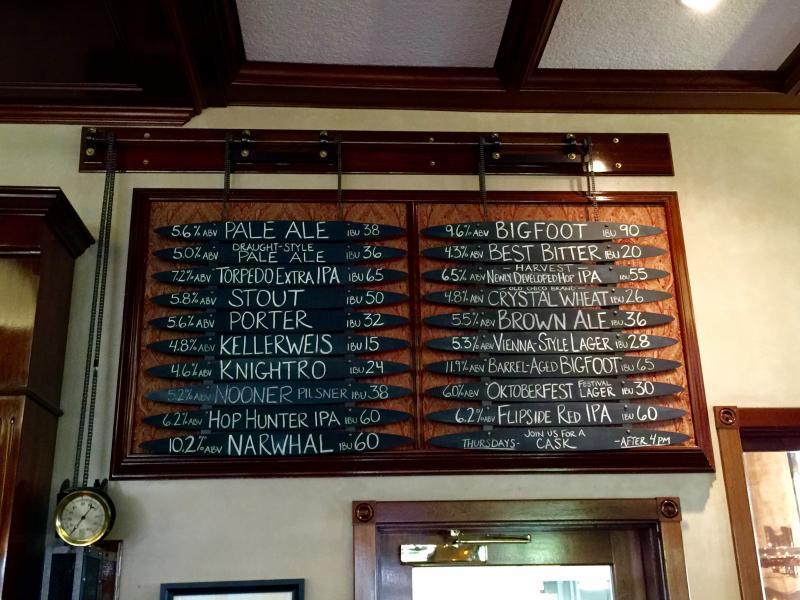 5.6% ABV PALE ALE IBU 38
DRAUGHT-STYLE
5.0% ABV PALE ALE IBU 36
7.2% ABV TORPEDO EXTRA IPA IBU 65
5.8% ABV STOUT IBU 50
5.6% ABV PORTER IBU 32
4.8% ABV KELLERWEIS IBU 15
4.6% ABV KNIGHTRO IBU 24
5.2% ABV NOONER PILSNER IBU 38
6.2% ABV HOP HUNTER IPA IBU 60
10.2% ABV NARWHAL IBU 60
9.6% ABV BIGFOOT IBU 90
4.3% ABV BEST BITTER IBU 20
HARVEST
6.5% ABV NEWLY DEVELOPED HOP IPA IBU 55
OLD CHICO BRAND
4.8% ABV CRYSTAL WHEAT IBU 26
5.5% ABV BROWN ALE IBU 36
5.3% ABV VIENNA-STYLE LAGER IBU 28
11.9% ABV BARREL-AGED BIGFOOT IBU 65
6.0% ABV OKTOBERFEST FESTIVAL LAGER IBU 30
6.2% ABV FLIPSIDE RED IPA IBU 60
JOIN US FOR A
THURSDAYS- CASK -AFTER 4PM